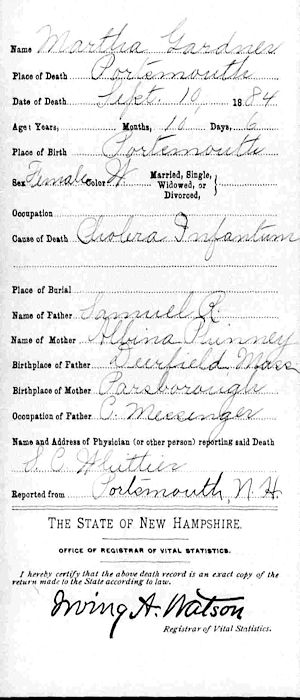 Name Martha Gardner
Place of Death Portsmouth
Date of Death Sept. 10, 1884
Age: Years, Months, 10 Days, 6
Place of Birth Portsmouth
Sex Female Color W Married, Single, Widowed, or Divorced,
Occupation
Cause of Death Cholera Infantum
Place of Burial
Name of Father Samuel R
Name of Mother Albina Pinney
Birthplace of Father Deerfield Mass
Birthplace of Mother Parsborough
Occupation of Father C. Messenger
Name and Address of Physician (or other person) reporting said Death
S. C. Whittier
Reported from Portsmouth, N. H.
THE STATE OF NEW HAMPSHIRE.
OFFICE OF REGISTRAR OF VITAL STATISTICS.
I hereby certify that the above death record is an exact copy of the
return made to the State according to law.
Irving A. Watson
Registrar of Vital Statistics.